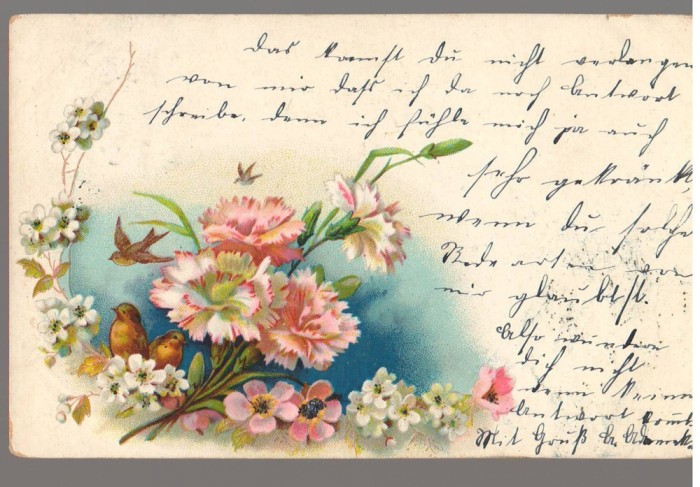 Das kannst du nicht verlangen
von mir daß ich da noch Antwort
schreibe, denn ich fühle mich ja auch
sehr gekränkt
wenn du solche
Redearten von
mir glaubtst.
Also wundere
dich nicht
wenn keine
Antwort kommt
Mit Gruß